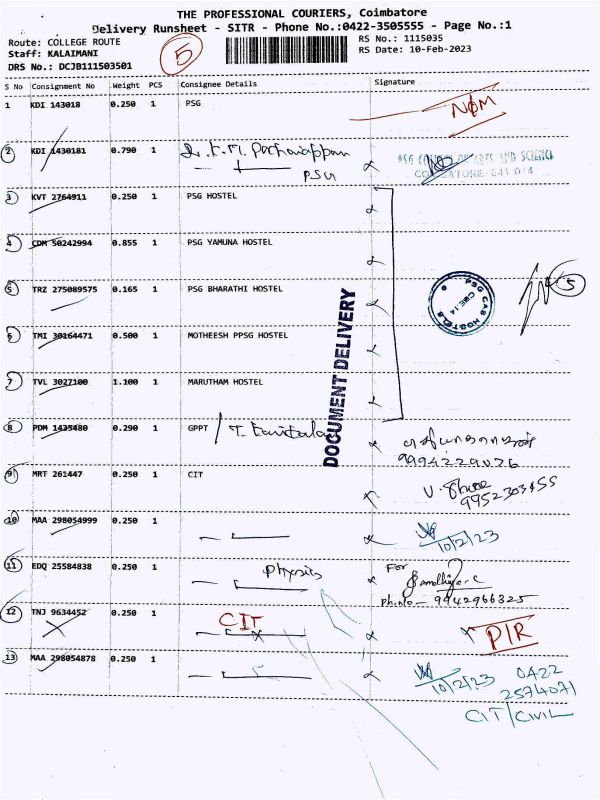 THE PROFESSIONAL COURIERS, Coimbatore
Delivery Runsheet - SITR - Phone No.:0422-3505555 - Page No.:1
Route: COLLEGE ROUTE
Staff: KALAIMANI
DRS No.: DCJB111503501
5
RS No.: 1115035
RS Date: 10-Feb-2023
S No Consignment No Weight PCS Consignee Details Signature
1 KDI 143018 0.250 1 PSG
2 KDI 1430181 0.790 1 PSG
PSG COLLEGE OF ARTS AND SCIENCE
COIMBATORE-641 014
3 KVT 2764911 0.250 1 PSG HOSTEL
4 CDM 50242994 0.855 1 PSG YAMUNA HOSTEL
5 TRZ 275089575 0.165 1 PSG BHARATHI HOSTEL
PSG CAS HOSTELS
CBE 14
5
6 TMI 30164471 0.500 1 MOTHEESH PPSG HOSTEL
7 TVL 3027100 1.100 1 MARUTHAM HOSTEL
DOCUMENT DELIVERY
8 PDM 1435480 0.290 1 GPPT
9994229076
9 MRT 261447 0.250 1 CIT
9952303455
10 MAA 298054999 0.250 1
10/2/23
11 EDQ 25584838 0.250 1 Physics For
Ph.No - 9942966325
12 TNJ 9634452 0.250 1 CIT P/R
13 MAA 298054878 0.250 1
10/2/23 0422
2574071
CIT/CIVIL